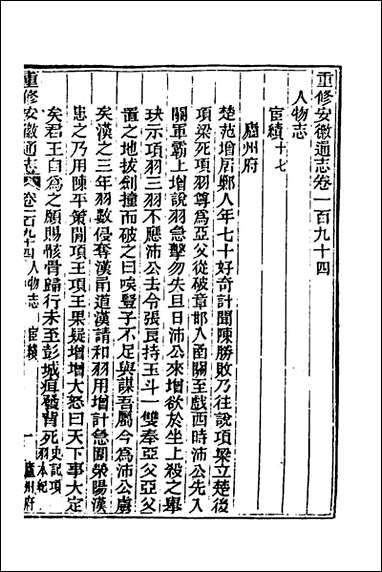 重修安徽通志卷一百九十四
人物志
宦績十七
廬州府
楚范增居鄛人年七十好奇計聞陳勝敗乃往說項梁立楚後
項梁死項羽尊為亞父從破章邯入函關至戲西時沛公先入
關軍霸上增說羽急擊勿失旦日沛公來增欲於坐上殺之舉
玦示項羽三羽不應沛公去令張良持玉斗一雙奉亞父亞父
置之地拔劍撞而破之曰唉豎子不足與謀吾屬今為沛公虜
矣漢之三年羽數侵奪漢甬道漢請和羽用增計急圍滎陽漢
患之乃用陳平策間項王項王果疑增增大怒曰天下事大定
矣君王自為之願賜骸骨歸行未至彭城疽發背死史記項羽本紀
重修安徽通志 卷一百九十四 人物志 宦績 一 廬州府